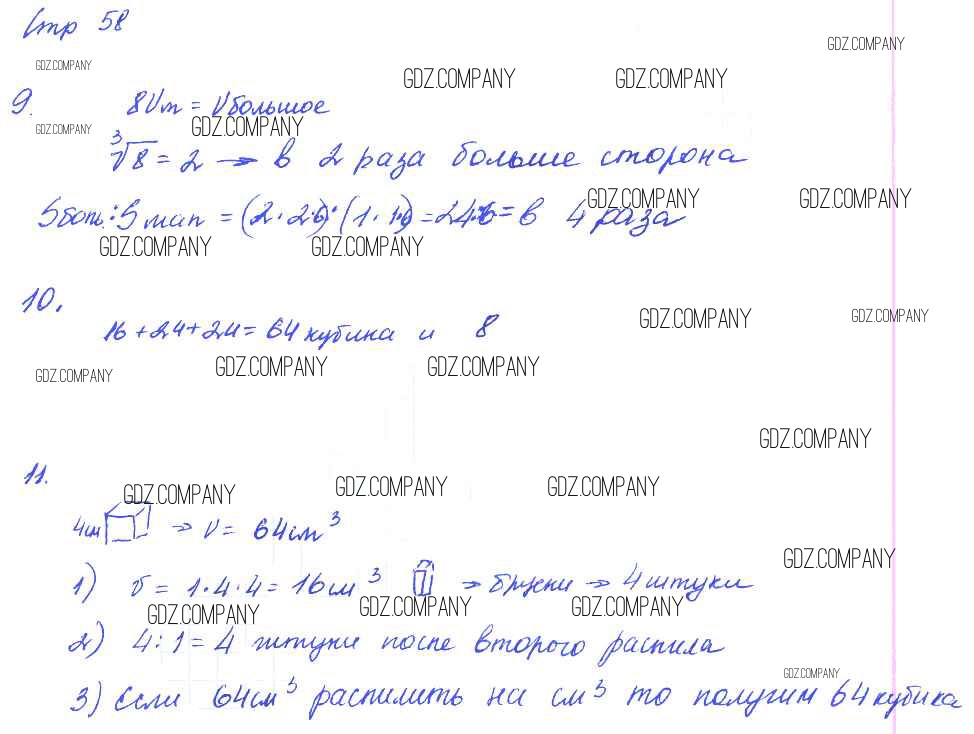 Стр 58
GDZ.COMPANY
GDZ.COMPANY
GDZ.COMPANY GDZ.COMPANY
9. 8Vм = Vбольшое
GDZ.COMPANY GDZ.COMPANY
∛8 = 2 → в 2 раза больше сторона
GDZ.COMPANY GDZ.COMPANY
Sбол. : Sмал = (2·2·6):(1·1·6) = 24:6 = в 4 раза
GDZ.COMPANY GDZ.COMPANY
10.
16 + 24 + 24 = 64 кубика и 8
GDZ.COMPANY GDZ.COMPANY
GDZ.COMPANY GDZ.COMPANY GDZ.COMPANY
GDZ.COMPANY
11.
GDZ.COMPANY GDZ.COMPANY GDZ.COMPANY
4см → V = 64см³
GDZ.COMPANY
1) V = 1·4·4 = 16см³ → бруски → 4 штуки
GDZ.COMPANY GDZ.COMPANY GDZ.COMPANY
2) 4:1 = 4 штуки после второго распила
GDZ.COMPANY
3) Если 64см³ распилить на см³ то получим 64 кубика